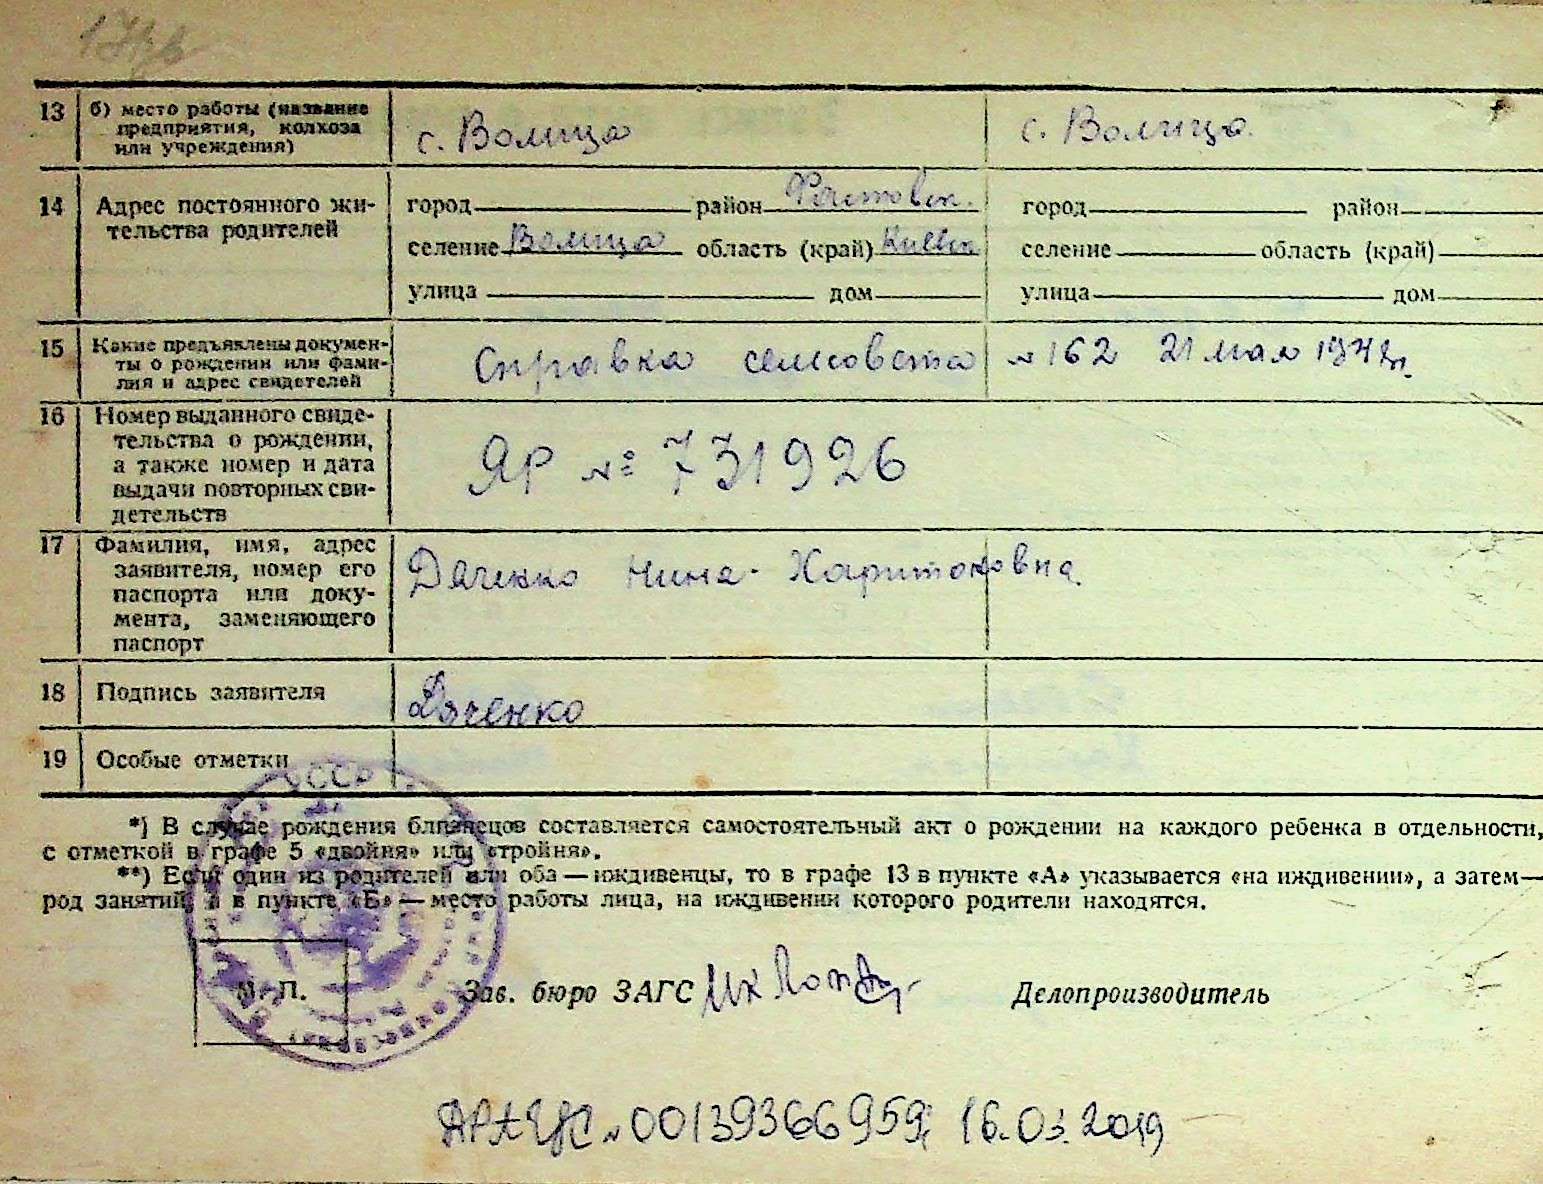 13 б) место работы (название
предприятия, колхоза
или учреждения)
с. Волица
с. Волица
14 Адрес постоянного жи-
тельства родителей
город район Фастовск.
селение Волица область (край) Киевск
улица дом
город район
селение область (край)
улица дом
15 Какие предъявлены докумен-
ты о рождении или фами-
лия и адрес свидетелей
Справка сельсовета № 162 21 мая
16 Номер выданного свиде-
тельства о рождении,
а также номер и дата
выдачи повторных сви-
детельств
ЯР № 731926
17 Фамилия, имя, адрес
заявителя, номер его
паспорта или доку-
мента, заменяющего
паспорт
Дяченко Нина Харитоновна
18 Подпись заявителя
Дяченко
19 Особые отметки
*) В случае рождения близнецов составляется самостоятельный акт о рождении на каждого ребенка в отдельности,
с отметкой в графе 5 «двойня» или «тройня».
**) Если один из родителей или оба — иждивенцы, то в графе 13 в пункте «А» указывается «на иждивении», а затем —
род занятий, а в пункте «Б» — место работы лица, на иждивении которого родители находятся.
УССР
М. П.
Зав. бюро ЗАГС
Делопроизводитель
ДРАЦС № 00139366959; 16.03.2019